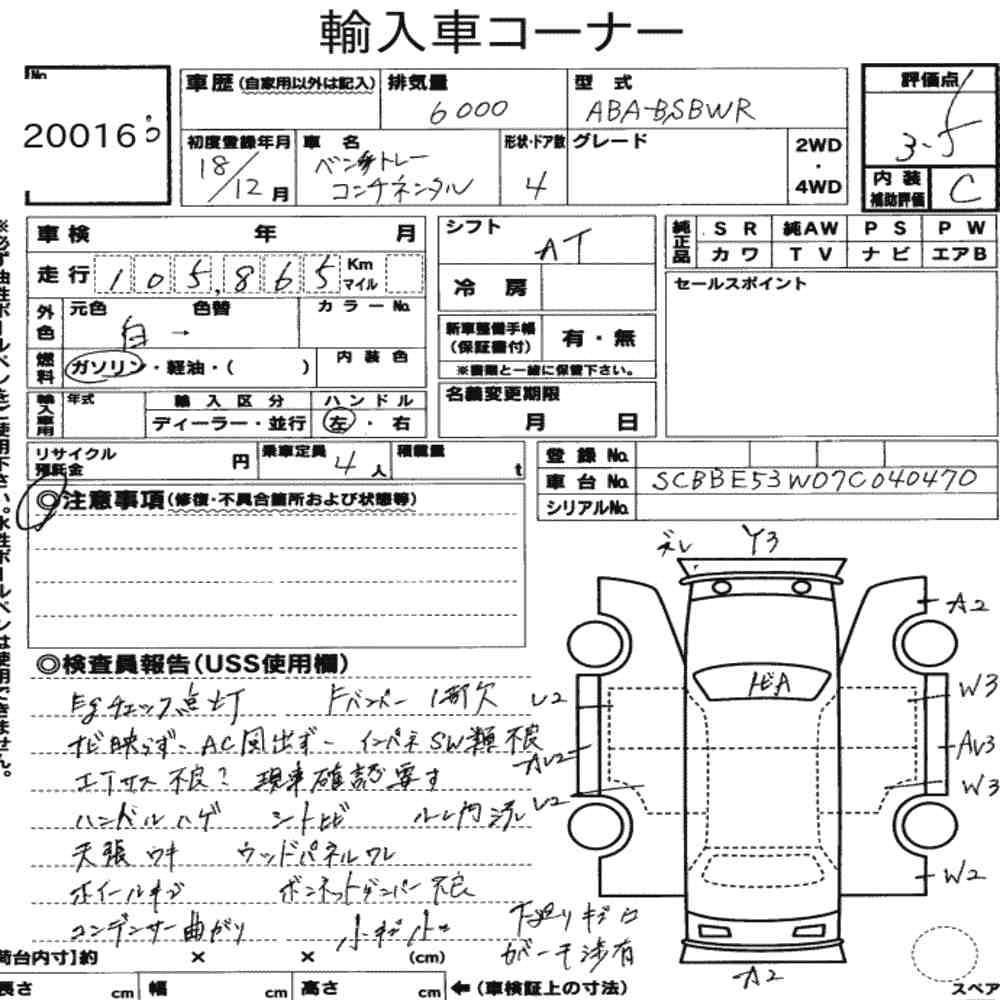 輸入車コーナー
No.
20016
車歴 (自家用以外は記入)
排気量
6000
型式
ABA-BSBWR
評価点
3.5
初度登録年月
18/12月
車名
ベントレー
コンチネンタル
形状・ドア数
4
グレード
2WD
・
4WD
内装
補助評価
C
※必ず油性ボールペンをご使用下さい。水性ボールペンは使用できません。
車検 年 月
走行 105,865 Km
マイル
外色
元色 色替
白 →
カラーNo.
燃料
ガソリン・軽油・( )
内装色
輸入車用
年式
輸入区分
ディーラー・並行
ハンドル
左・右
シフト
AT
冷房
新車整備手帳
(保証書付)
有・無
※書類と一緒に保管下さい。
名義変更期限
月 日
純正品
SR 純AW PS PW
カワ TV ナビ エアB
セールスポイント
リサイクル
預託金 円
乗車定員
4人
積載量
t
登録No.
車台No. SCBBE53W07C040470
シリアルNo.
◎注意事項(修復・不具合箇所および状態等)
◎検査員報告(USS使用欄)
Egチェック点灯 Fバンパー 1部欠
ナビ映らず AC風出ず インパネSW類不良
エアサス不良? 現車確認要す
ハンドルハゲ シートヒビ ルーム内汚レ
天張ウキ ウッドパネルワレ
ホイールキズ ボンネットダンパー不良
コンデンサー曲がり 小キズ小凹
下廻りキズ凹
ガード渉有
ズレ
Y3
A2
W3
AV3
W3
W2
A2
U2
AV2
U2
トビA
荷台内寸】約 × × (cm)
長さ cm 幅 cm 高さ cm ←(車検証上の寸法)
スペア